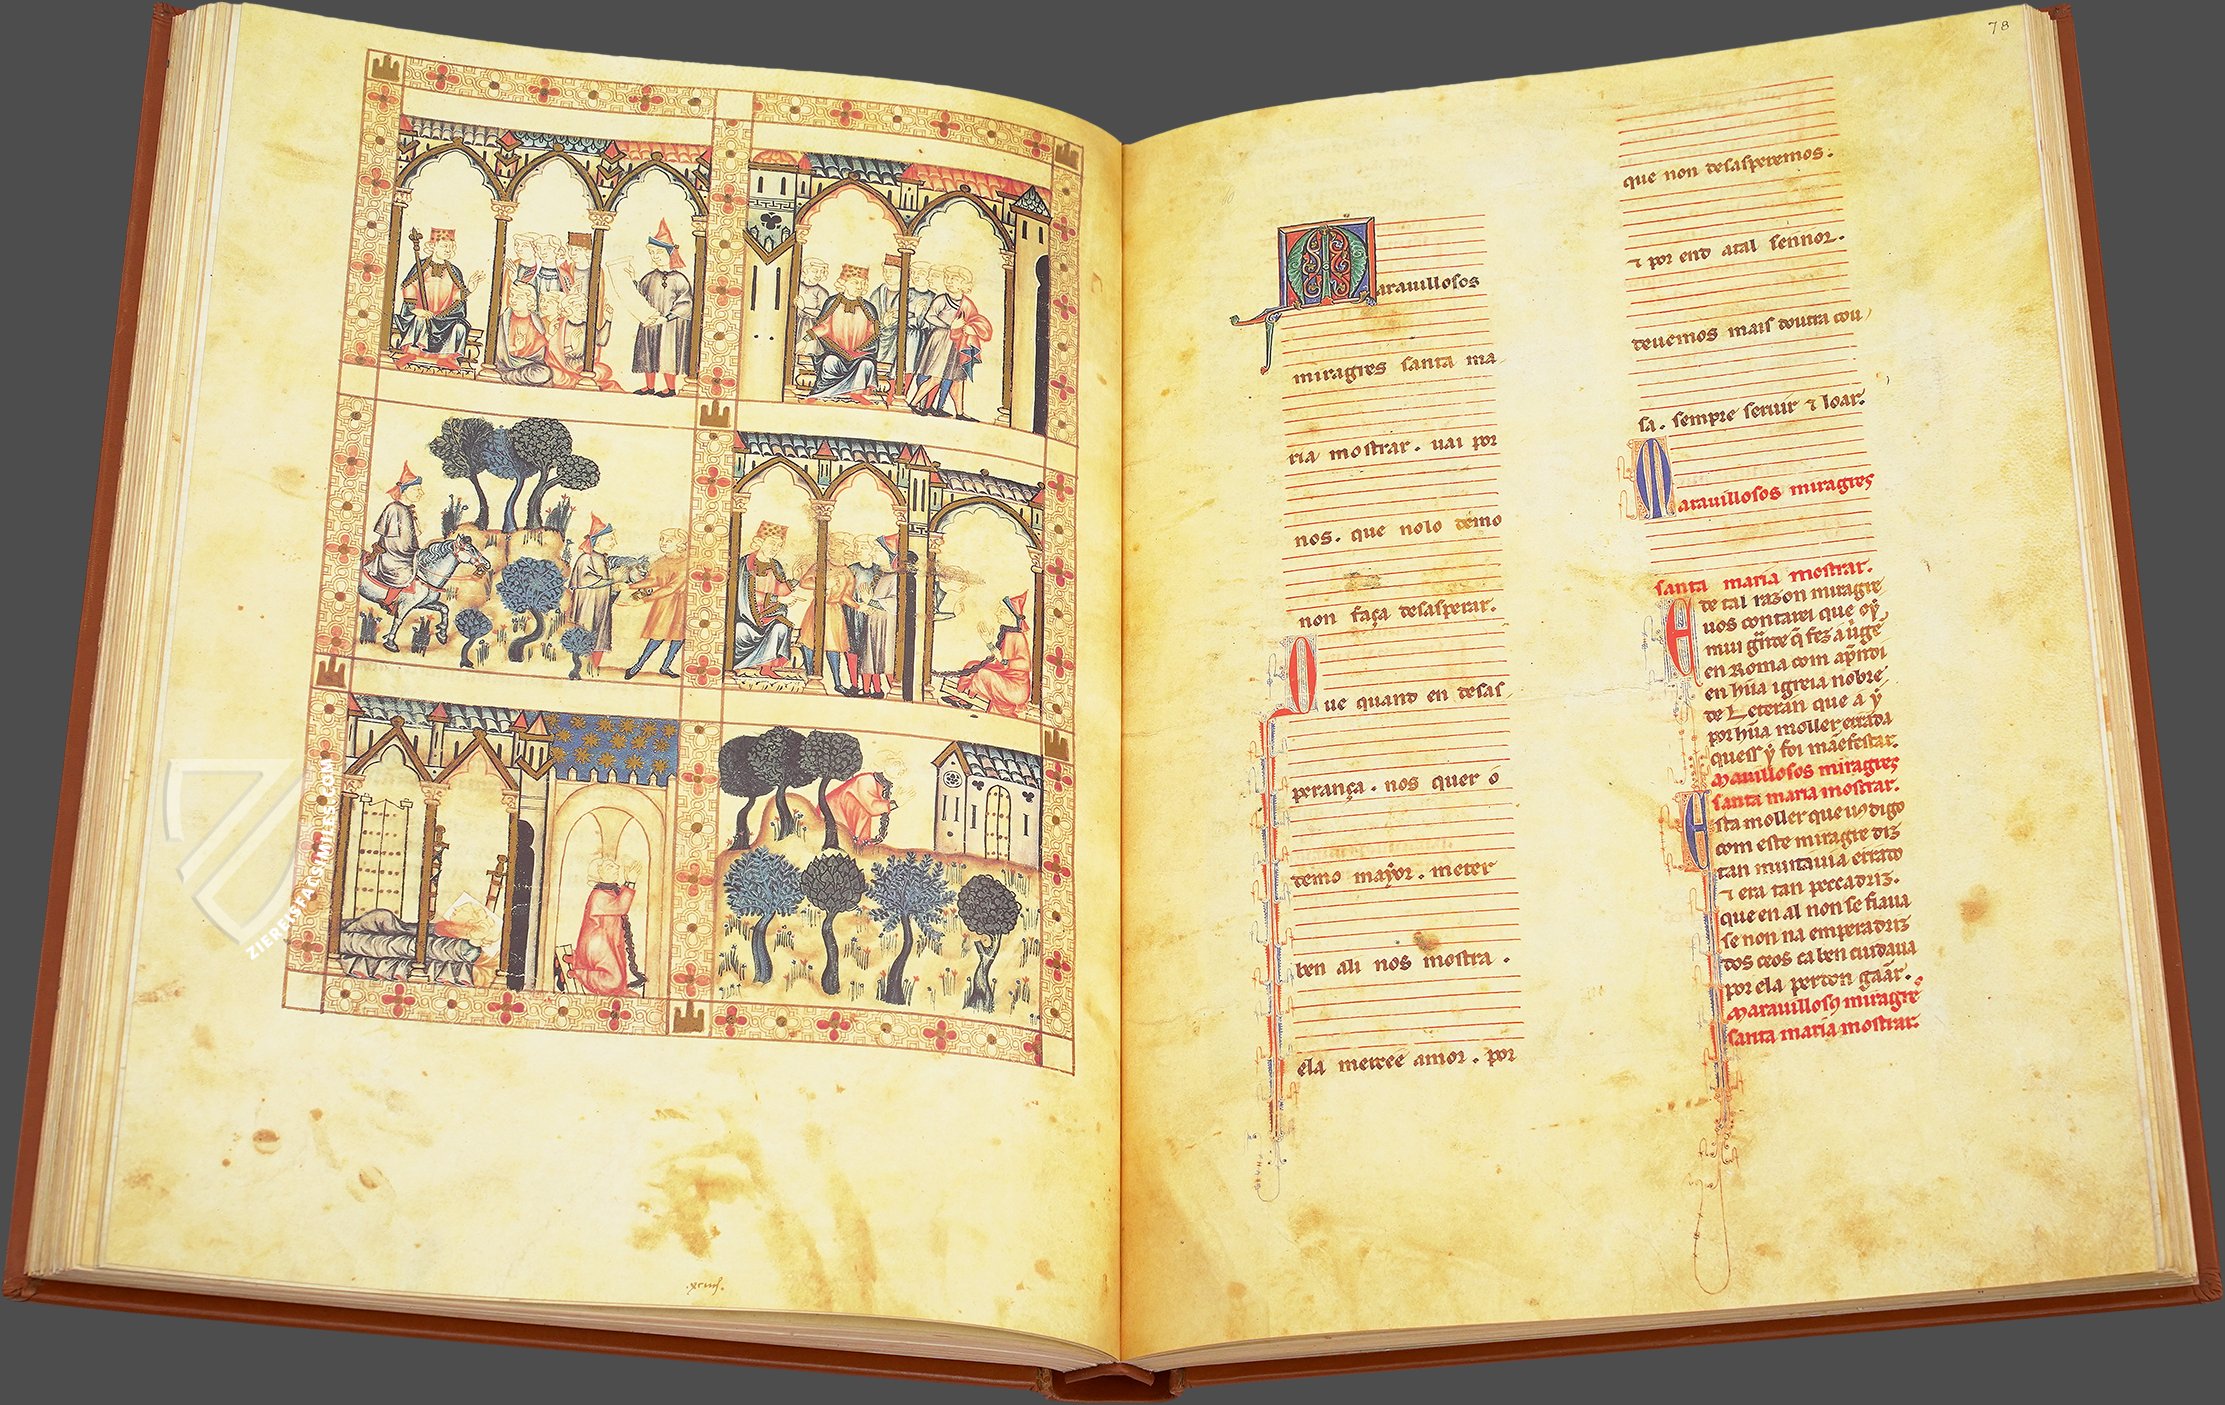 78
Marauillosos
miragres santa ma
ria mostrar. uai por
nos. que nolo demo
non faça desasperar.
Que quand en desas
perança. nos quer o
demo mayor. meter
ben ali nos mostra.
ela mercee amor. por
que non desasperemos.
⁊ por end atal sennor.
deuemos mais doutra cou
sa. sempre seruir ⁊ loar.
Marauillosos miragres
santa maria mostrar.
E de tal razon miragre
uos contarei que oý
mui que fez
en Roma com
en hũa igreia nobre
de Leteran que a ý
por hũa moller errada
quess ý foi mãefestar.
Marauillosos miragres
santa maria mostrar.
Esta moller que uos digo
com este miragre diz
tan muit auia errado
⁊ era tan peccadriz.
que en al non se fiaua
se non na emperadriz
dos ceos ca ben cuidaua
por ela perdon gãar.
Marauillosos miragres
santa maria mostrar.
ZIEREIS FACSIMILES.COM